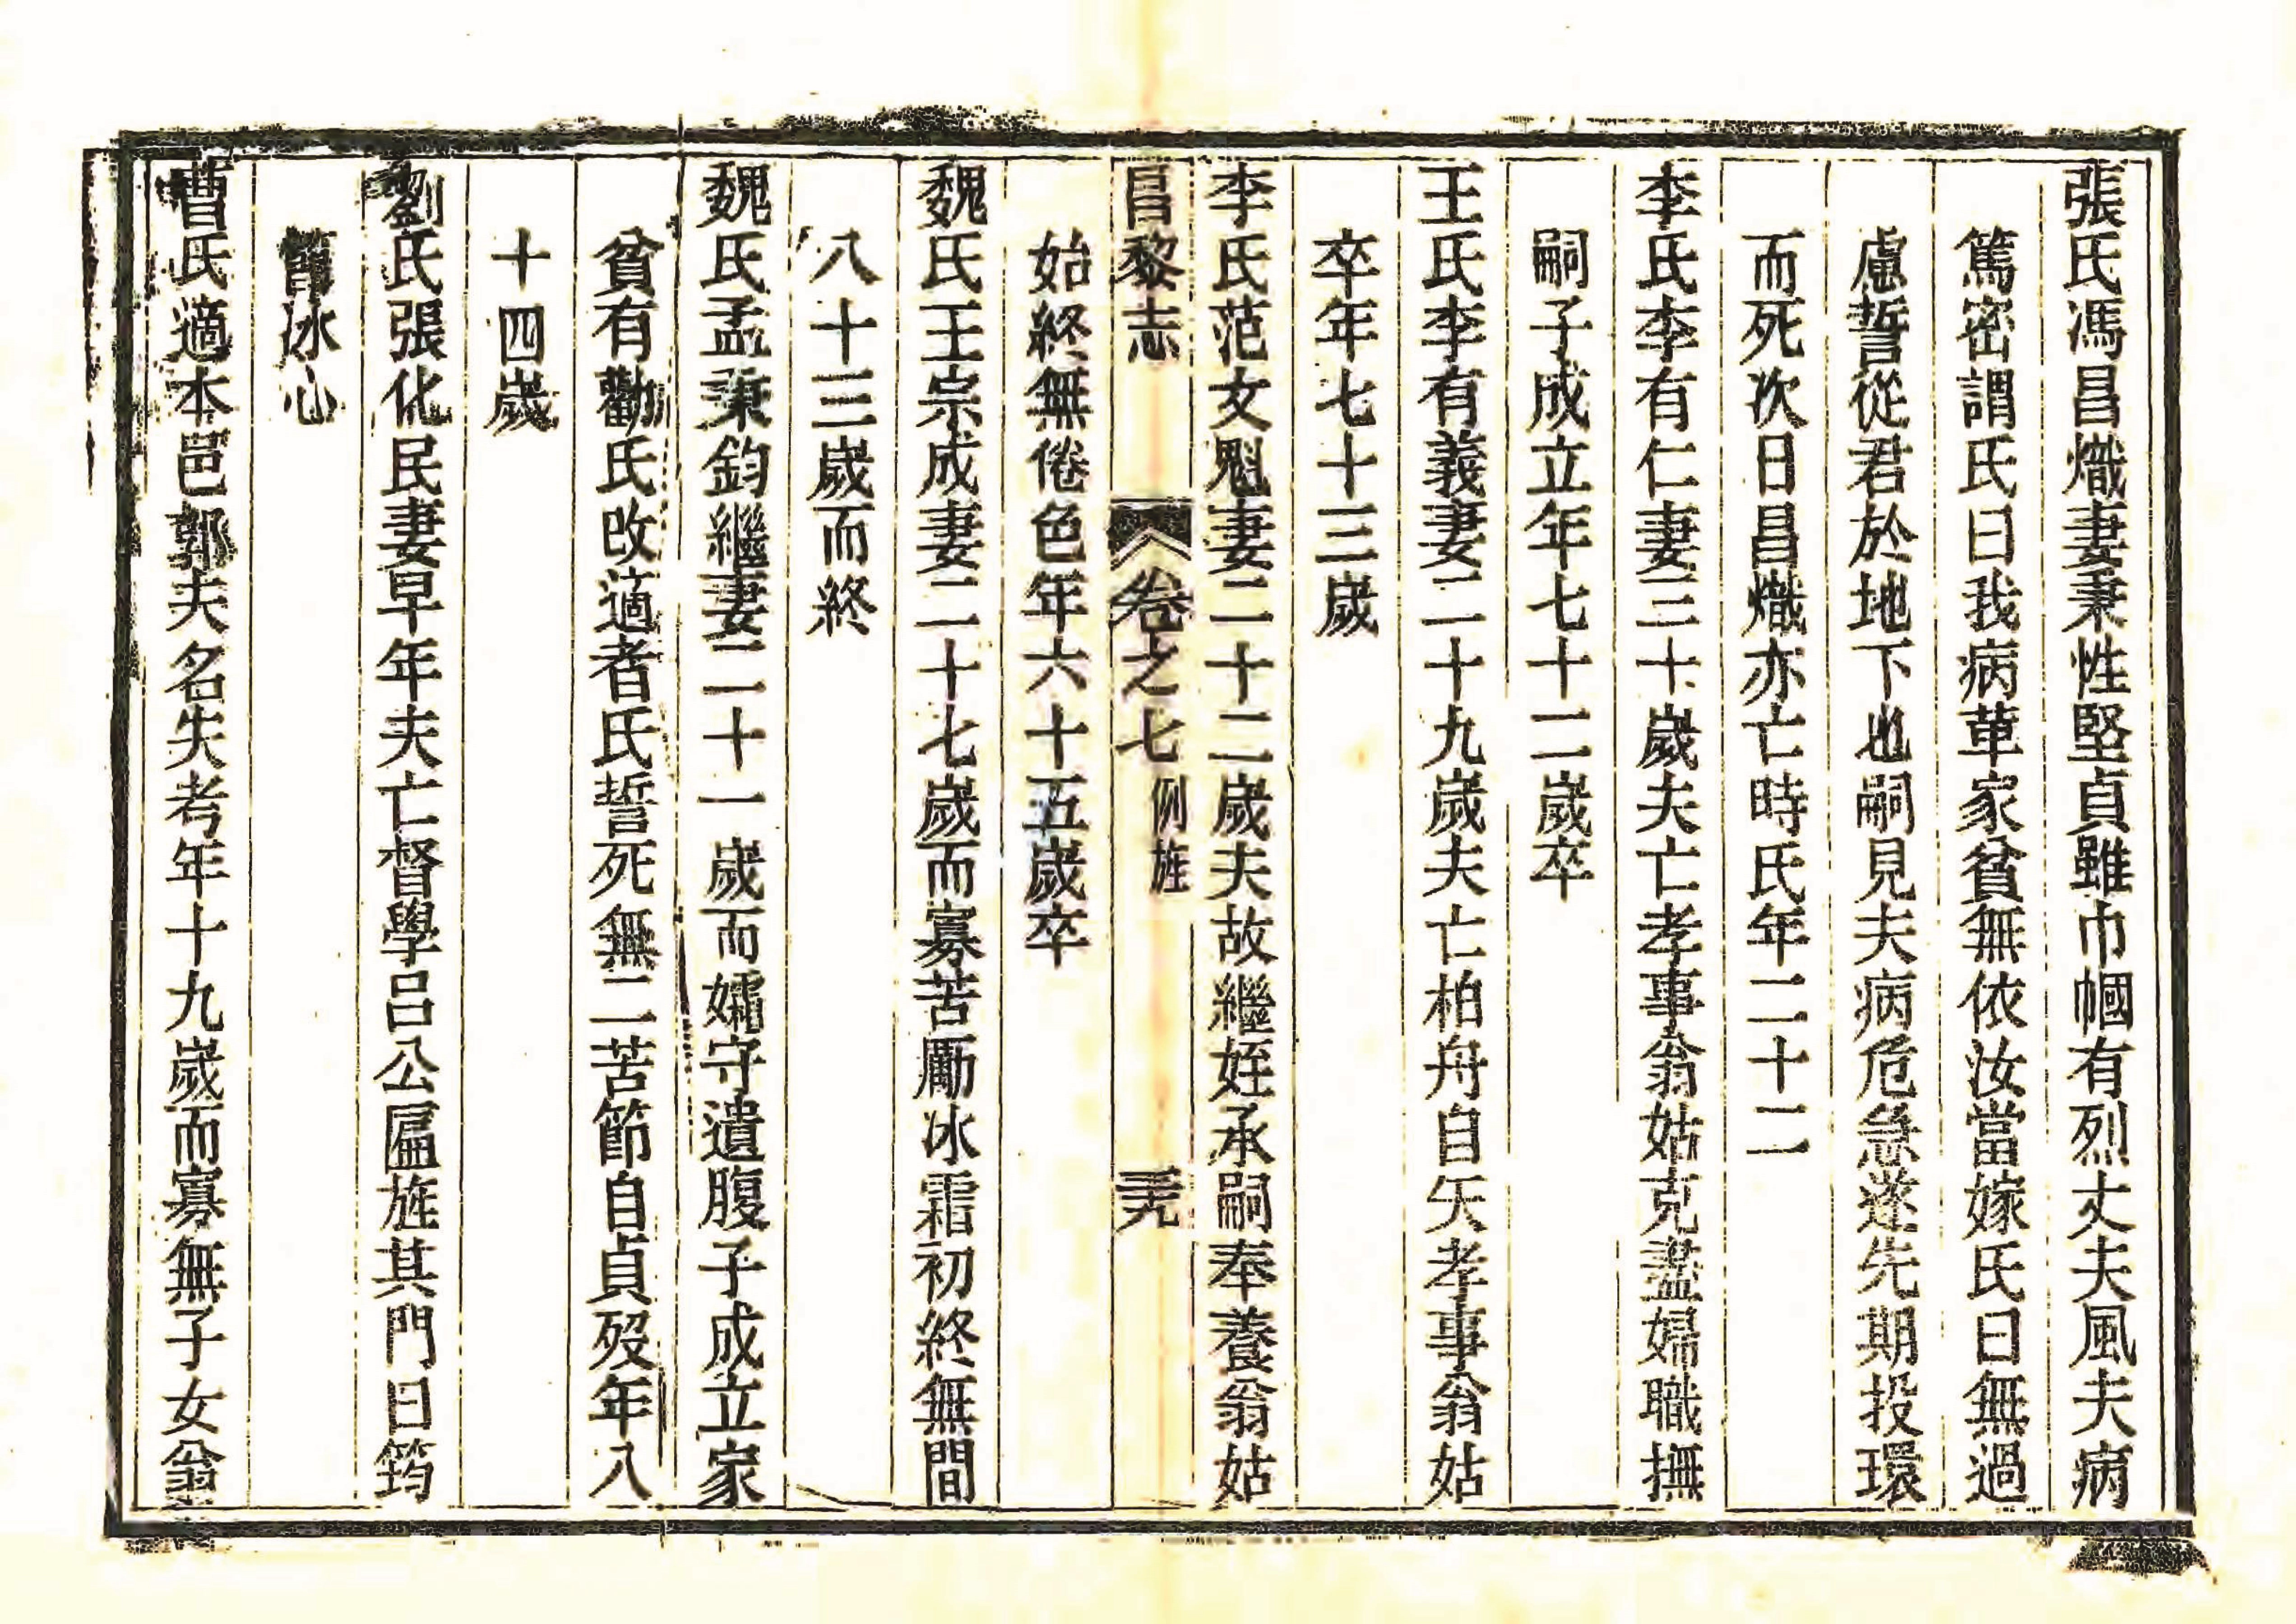 張氏馮昌熾妻秉性堅貞雖巾幗有烈丈夫風夫病
篤密謂氏曰我病革家貧無依汝當嫁氏曰無過
慮誓從君於地下也嗣見夫病危急遂先期投環
而死次日昌熾亦亡時氏年二十二
李氏李有仁妻三十歲夫亡孝事翁姑克盡婦職撫
嗣子成立年七十二歲卒
王氏李有義妻二十九歲夫亡柏舟自矢孝事翁姑
卒年七十三歲
李氏范文魁妻二十二歲夫故繼姪承嗣奉養翁姑
昌黎志 卷之七 例旌 三十九
始終無倦色年六十五歲卒
魏氏王宗成妻二十七歲而寡苦勵冰霜初終無間
八十三歲而終
魏氏孟秉鈞繼妻二十一歲而孀守遺腹子成立家
貧有勸氏改適者氏誓死無二苦節自貞歿年八
十四歲
劉氏張化民妻早年夫亡督學呂公匾旌其門曰筠
節冰心
曹氏適本邑郭夫名失考年十九歲而寡無子女翁